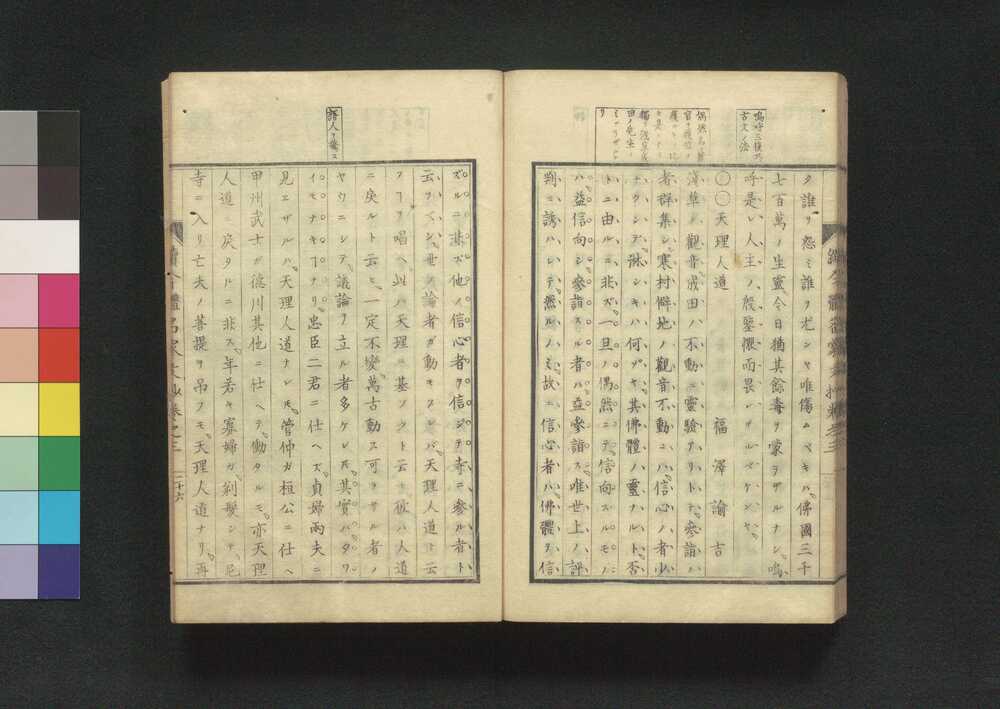 嗚呼三復ハ
古文ノ法
ク誰ヲ怨ミ誰ヲ尤ンヤ唯傷ムベキハ佛國三千
七百萬ノ生靈今日猶其餘毒ヲ蒙ラザルナシ嗚
呼是レ人主ノ殷鑒懼而畏レザルベケンヤ
〇〇天理人道 福澤諭吉
淺草ノ觀音成田ノ不動ニ靈驗アリトテ參詣ノ
者群集シ寒村僻地ノ觀音不動ニハ信心ノ者少
ナクシテ淋シキハ何ゾヤ其佛體ノ靈ナルト否
トニ由ルニ非ズ一旦ノ偶然ニテ信向スルモノ
ハ益信向シ參詣スル者ハ益參詣ス唯世上ノ評
判ニ誘ハレシテ然ルノミ故ニ信心者ハ佛體ヲ信
ズルニ非ズ他ノ信心者ヲ信ジテ寺ニ參ル者ト
云フベシ世ノ論者ガ動モスレバ天理人道ト云
フヿヲ唱ヘ此ハ天理ニ基ツクト云ヒ彼ハ人道
ニ戾ルト云ヒ一定不變萬古動ス可ラサル者ノ
ヤウニシテ議論ヲ立ル者多ケレ𪜈其實ハタワ
イモナキヿナリ忠臣二君ニ仕ヘズ貞婦兩夫ニ
見エザルハ天理人道ナレ𪜈管仲ガ桓公ニ仕ヘ
甲州武士ガ德川其他ニ仕ヘテ働タルモ亦天理
人道ニ戾タルニ非ス年若キ寡婦ガ剃髮シテ尼
寺ニ入リ亡夫ノ菩提ヲ弔フモ天理人道ナリ再
續今體名家文抄卷之三 二十六